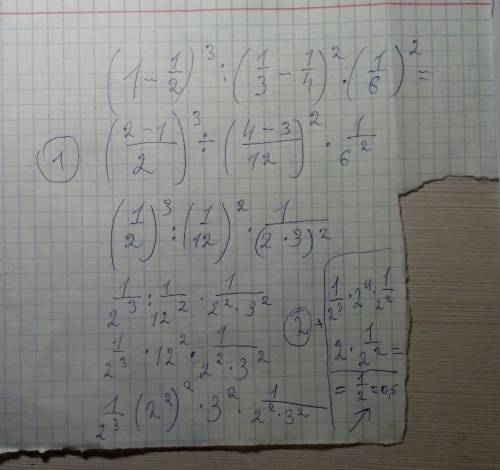 (1 - 1/2)³ : (1/3 - 1/4)² · (1/6)² =
① ((2-1)/2)³ ÷ ((4-3)/12)² · 1/6²
(1/2)³ : (1/12)² · 1/(2·3)²
1/2³ : 1/12² · 1/(2²·3²)
1/2³ · 12² · 1/(2²·3²)
1/2³ (2²)² · 3² · 1/(2²·3²)
② 1/2³ · 2⁴ · 1/2²
2 · 1/2² =
= 1/2 = 0,5